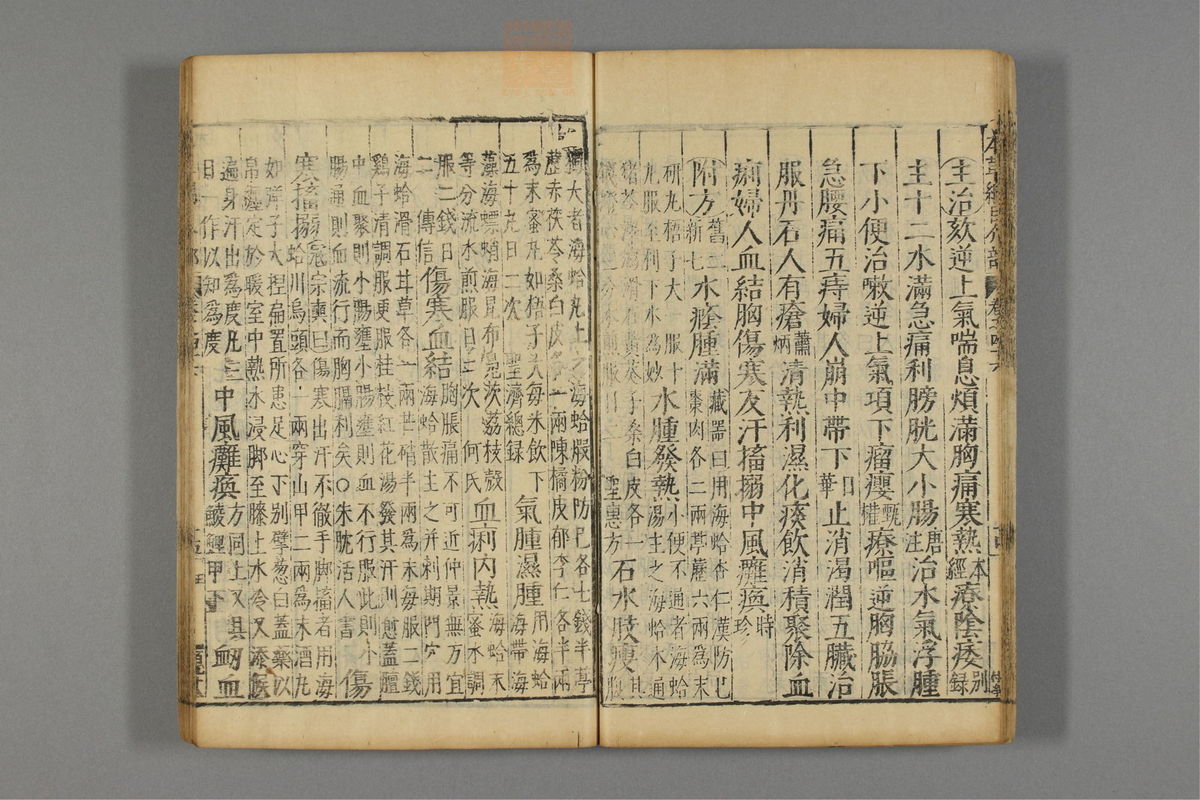 主治欬逆上氣喘息煩滿胸痛寒熱本經療陰痿別錄
主十二水滿急痛利膀胱大小腸唐注治水氣浮腫
下小便治嗽逆上氣項下瘤癭甄權療嘔逆胸脇脹
急腰痛五痔婦人崩中帶下日華止消渴潤五臟治
服丹石人有瘡蕭炳清熱利濕化痰飲消積聚除血
痢婦人血結胸傷寒反汗搐搦中風癱瘓時珍
附方舊二新七水癊腫滿藏器曰用海蛤杏仁漢防己
棗肉各二兩葶藶六兩為末
研丸梧子大一服十
九服至利下水為妙水腫發熱小便不通者海蛤
湯主之海蛤木通
猪苓澤瀉滑石黄葵子桑白皮各一
聖惠方石水肢瘦其
獨大者海蛤丸主之海蛤煅粉防已各七錢半葶
藶赤茯苓桑白皮各一兩陳橘皮郁李仁各半兩
為末蜜丸如梧子大每米飲下
五十丸日二次聖濟總録氣腫濕腫用海蛤
海帶海
藻海螵蛸海昆布鳬茨荔枝殼
等分流水煎服日二次何氏血痢内熱海蛤末
蜜水調
服二錢日
二傳信傷寒血結胸脹痛不可近仲景無方宜
海蛤散主之并刺期門穴用
海蛤滑石甘草各一兩芒硝半兩為末每服二錢
鷄子清調服更服桂枝紅花湯發其汗則愈蓋膻
中血聚則小腸壅小腸壅則血不行服此則小
腸通則血流行而胸膈利矣○朱肱活人書傷
寒搐搦寇宗奭曰傷寒出汗不徹手脚搐者用海
蛤川烏頭各一兩穿山甲二兩為末酒丸
如彈子大捏扁置所患足心下别擘葱白蓋藥以
帛纒定於暖室中熱水浸脚至膝上水冷又添候
遍身汗出為度凡三
日一作以知為度中風癱瘓方同上又具
鯪鯉甲下衂血